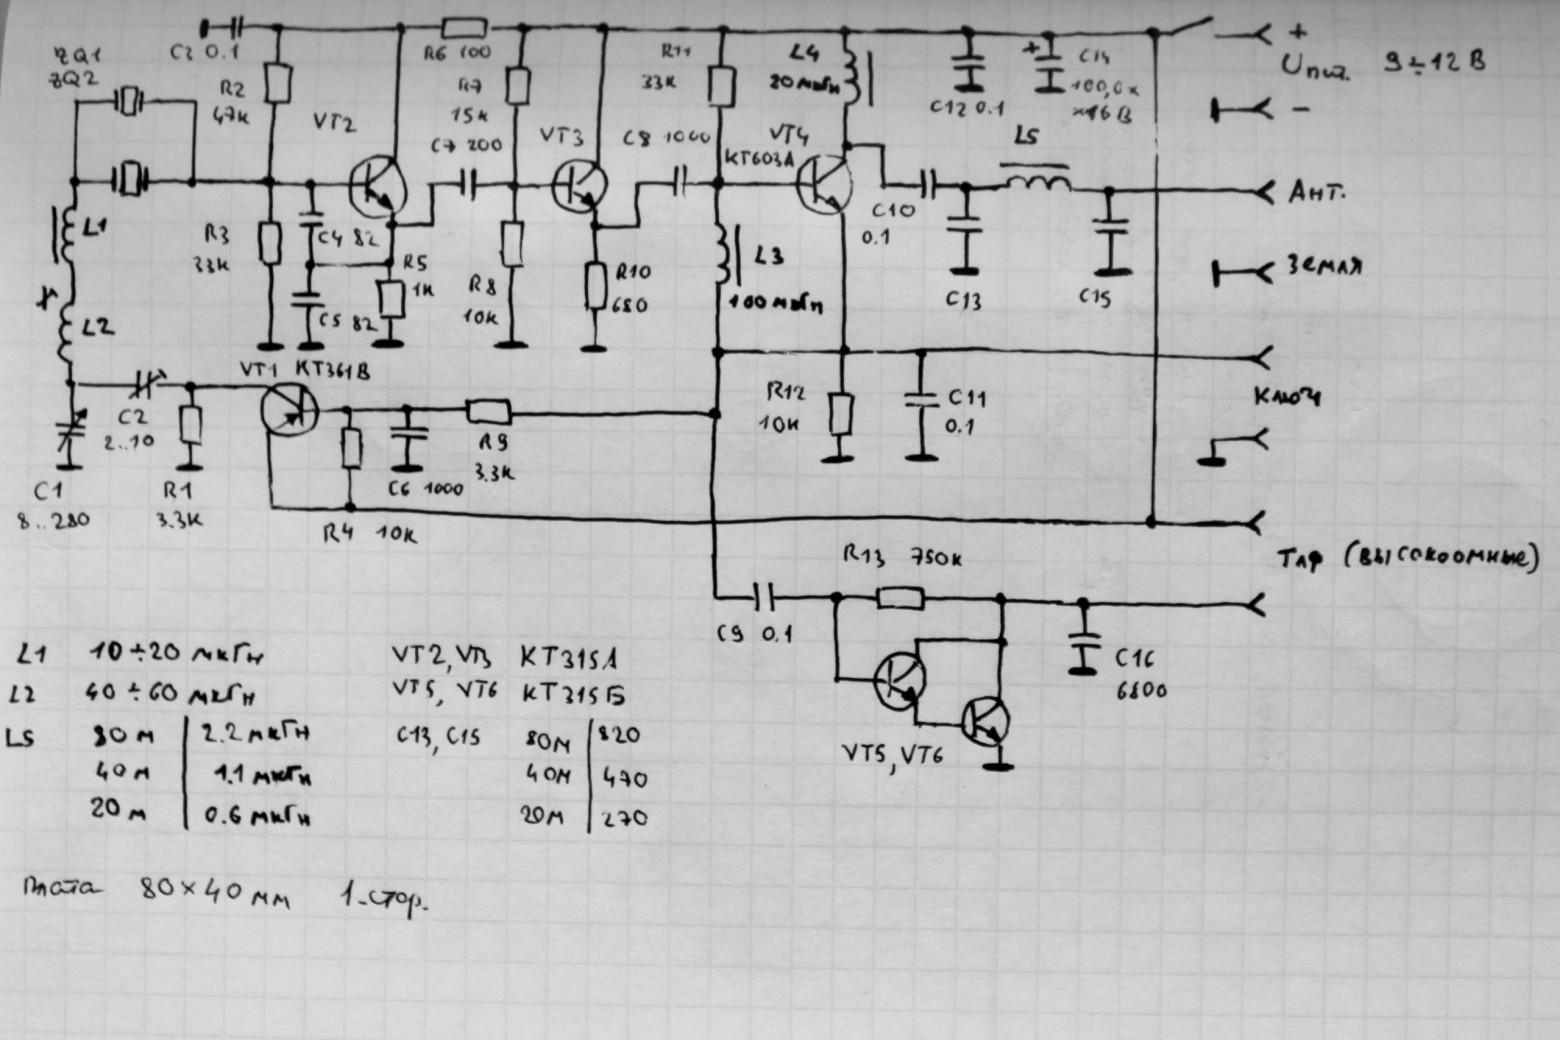 ZQ1
ZQ2
C3 0.1
R2
47К
VT2
R6 100
R7
15К
C7 200
VT3
R11
33К
C8 1000
L4
20 мкГн
VT4
КТ603А
C12 0.1
+ C14
100,0 х
×16 В
+
Uпит. 9÷12 В
−
L5
Ант.
C10
0.1
C13
C15
Земля
L1
L2
R3
33К
C4 82
C5 82
R5
1К
R8
10К
R10
680
L3
100 мкГн
VT1 КТ361В
C2
2..10
C1
8..280
R1
3.3К
R4 10К
C6 1000
R9
3.3К
R12
10К
C11
0.1
Ключ
Тлф (высокоомные)
R13 750К
C9 0.1
C16
6800
VT5, VT6
L1 10÷20 мкГн
L2 40÷60 мкГн
L5 80 м 2.2 мкГн
40 м 1.1 мкГн
20 м 0.6 мкГн
VT2, VT3 КТ315А
VT5, VT6 КТ315Б
C13, C15 80м 820
40м 470
20м 270
Плата 80×40 мм 1-стор.